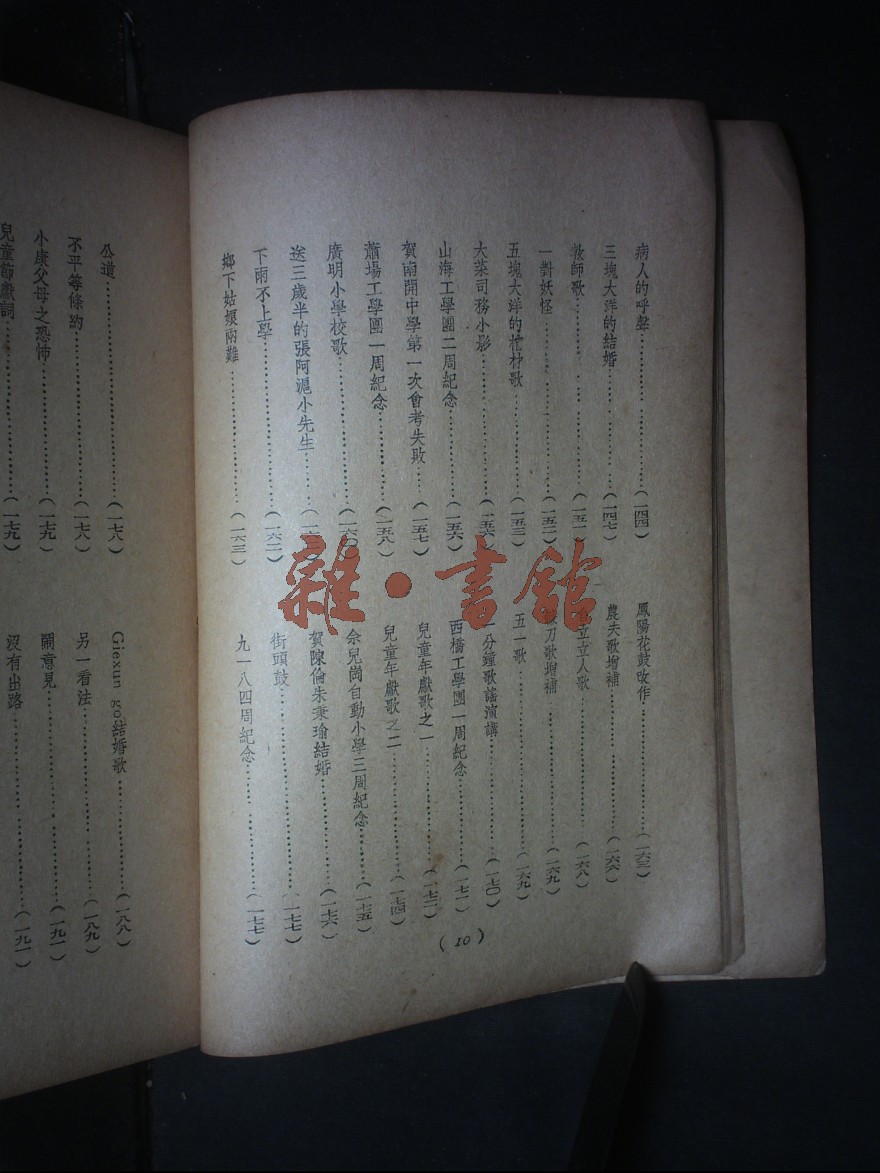 病人的呼聲……(一四四)
三塊大洋的結婚……(一四七)
教師歌……(一五一)
一對妖怪……(一五二)
五塊大洋的棺材歌……(一五三)
大菜司務小影……(一五六)
山海工學團二周紀念……(一五六)
賀南開中學第一次會考失敗……(一五七)
蕭場工學團一周紀念……(一五八)
廣明小學校歌……(一六〇)
送三歲半的張阿滬小先生……
下雨不上學……(一六二)
鄉下姑娘兩難……(一六三)
鳳陽花鼓改作……(一六三)
農夫歌增補……(一六六)
立立人歌……(一六八)
刀歌增補……(一六九)
五一歌……(一六九)
一分鐘歌謠演講……(一七〇)
西橋工學團一周紀念……(一七一)
兒童年獻歌之一……(一七二)
兒童年獻歌之二……(一七四)
余兒崗自動小學三周紀念……(一七五)
賀陳倫朱秉瑜結婚……(一七六)
街頭鼓……(一七七)
九一八四周紀念……(一七七)
(10)
公道……(一七八)
不平等條約……(一七八)
小康父母之恐怖……(一七九)
兒童節獻詞……(一七九)
Giexun go結婚歌……(一八八)
另一看法……(一八九)
鬧意見……(一九一)
沒有出路……(一九一)
雜·書館